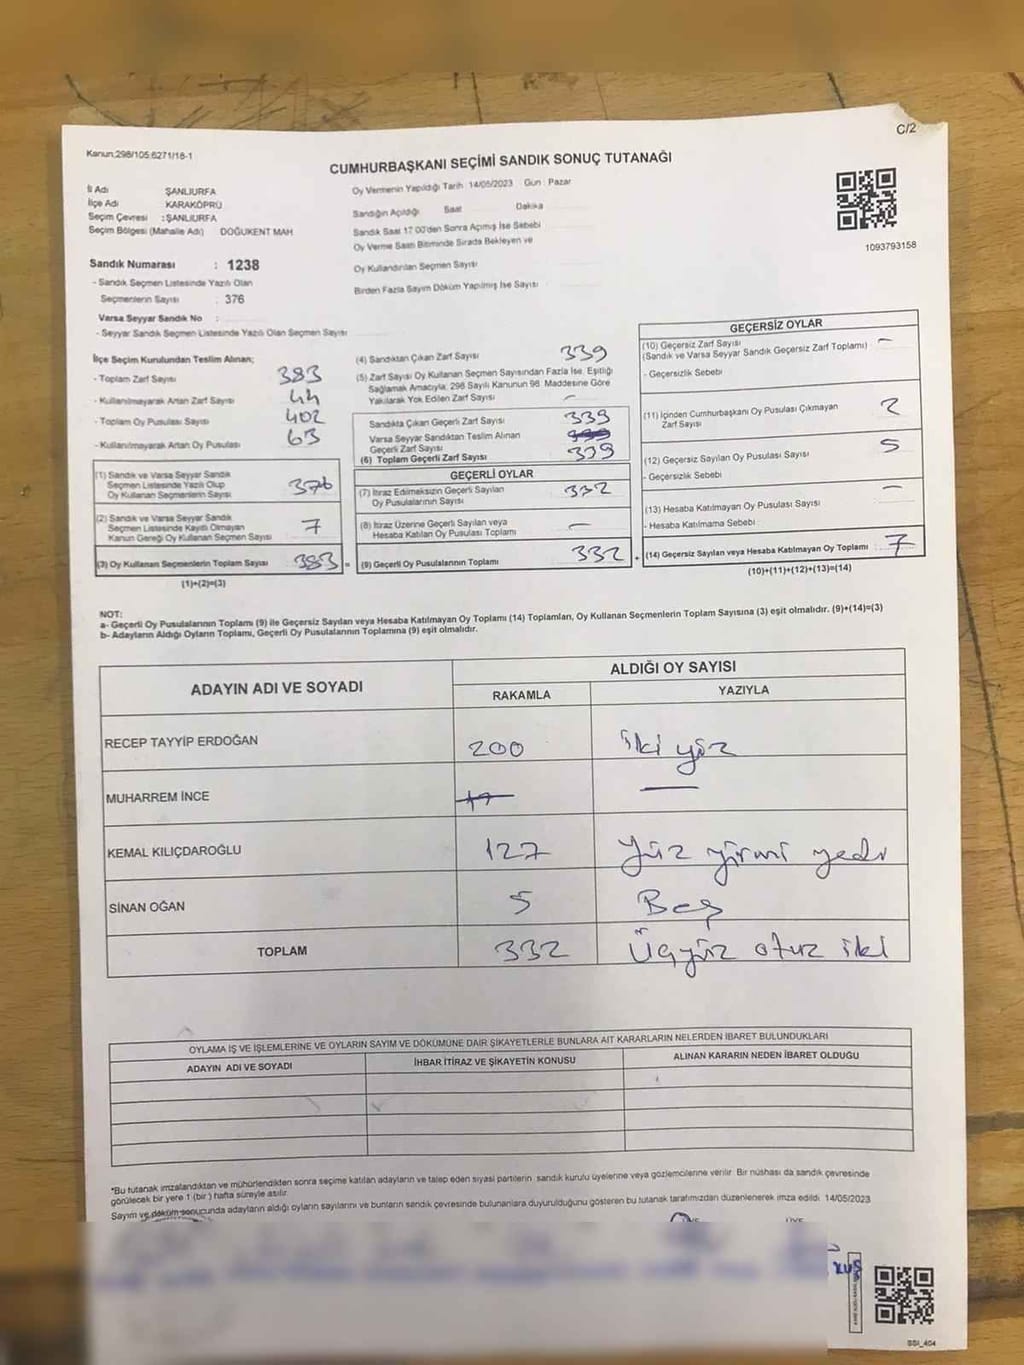 C/2
Kanun:298/105:6271/18-1
CUMHURBAŞKANI SEÇİMİ SANDIK SONUÇ TUTANAĞI
İl Adı ŞANLIURFA
İlçe Adı KARAKÖPRÜ
Seçim Çevresi :ŞANLIURFA
Seçim Bölgesi (Mahalle Adı) DOĞUKENT MAH
Oy Vermenin Yapıldığı Tarih 14/05/2023 Gün : Pazar
Sandığın Açıldığı Saat Dakika
Sandık Saat 17:00'den Sonra Açımış İse Sebebi
Oy Verme Saati Bitiminde Sırada Bekleyen ve
Oy Kullandırılan Seçmen Sayısı
Birden Fazla Sayım Döküm Yapılmış İse Sayısı
1093793158
Sandık Numarası : 1238
- Sandık Seçmen Listesinde Yazılı Olan
Seçmenlerin Sayısı : 376
Varsa Seyyar Sandık No :
- Seyyar Sandık Seçmen Listesinde Yazılı Olan Seçmen Sayısı
İlçe Seçim Kurulundan Teslim Alınan;
- Toplam Zarf Sayısı 383
- Kullanılmayarak Artan Zarf Sayısı 44
- Toplam Oy Pusulası Sayısı 402
- Kullanılmayarak Artan Oy Pusulası 63
(1) Sandık ve Varsa Seyyar Sandık
Seçmen Listesinde Yazılı Olup
Oy Kullanan Seçmenlerin Sayısı 376
(2) Sandık ve Varsa Seyyar Sandık
Seçmen Listesinde Kayıtlı Olmayan
Kanun Gereği Oy Kullanan Seçmen Sayısı 7
(3) Oy Kullanan Seçmenlerin Toplam Sayısı 383 =
(1)+(2)=(3)
(4) Sandıktan Çıkan Zarf Sayısı 339
(5) Zarf Sayısı Oy Kullanan Seçmen Sayısından Fazla İse, Eşitliği
Sağlamak Amacıyla, 298 Sayılı Kanunun 98. Maddesine Göre
Yakılarak Yok Edilen Zarf Sayısı –
Sandıkta Çıkan Geçerli Zarf Sayısı 339
Varsa Seyyar Sandıktan Teslim Alınan
Geçerli Zarf Sayısı
(6) Toplam Geçerli Zarf Sayısı 339
GEÇERLİ OYLAR
(7) İtiraz Edilmeksizin Geçerli Sayılan
Oy Pusulalarının Sayısı 332
(8) İtiraz Üzerine Geçerli Sayılan veya
Hesaba Katılan Oy Pusulası Toplamı –
(9) Geçerli Oy Pusulalarının Toplamı 332 +
GEÇERSİZ OYLAR
(10) Geçersiz Zarf Sayısı –
(Sandık ve Varsa Seyyar Sandık Geçersiz Zarf Toplamı)
- Geçersizlik Sebebi
(11) İçinden Cumhurbaşkanı Oy Pusulası Çıkmayan
Zarf Sayısı 2
(12) Geçersiz Sayılan Oy Pusulası Sayısı 5
- Geçersizlik Sebebi
(13) Hesaba Katılmayan Oy Pusulası Sayısı –
- Hesaba Katılmama Sebebi
(14) Geçersiz Sayılan veya Hesaba Katılmayan Oy Toplamı 7
(10)+(11)+(12)+(13)=(14)
NOT:
a- Geçerli Oy Pusulalarının Toplamı (9) ile Geçersiz Sayılan veya Hesaba Katılmayan Oy Toplamı (14) Toplamları, Oy Kullanan Seçmenlerin Toplam Sayısına (3) eşit olmalıdır. (9)+(14)=(3)
b- Adayların Aldığı Oyların Toplamı, Geçerli Oy Pusulalarının Toplamına (9) eşit olmalıdır.
ADAYIN ADI VE SOYADI
ALDIĞI OY SAYISI
RAKAMLA YAZIYLA
RECEP TAYYİP ERDOĞAN 200 İki yüz
MUHARREM İNCE –
KEMAL KILIÇDAROĞLU 127 Yüz yirmi yedi
SİNAN OĞAN 5 Beş
TOPLAM 332 Üçyüz otuz iki
OYLAMA İŞ VE İŞLEMLERİNE VE OYLARIN SAYIM VE DÖKÜMÜNE DAİR ŞİKAYETLERLE BUNLARA AİT KARARLARIN NELERDEN İBARET BULUNDUKLARI
ADAYIN ADI VE SOYADI İHBAR İTİRAZ VE ŞİKAYETİN KONUSU ALINAN KARARIN NEDEN İBARET OLDUĞU
*Bu tutanak imzalandıktan ve mühürlendikten sonra seçime katılan adayların ve talep eden siyasi partilerin sandık kurulu üyelerine veya gözlemcilerine verilir. Bir nüshası da sandık çevresinde
görülecek bir yere 1 (bir) hafta süreyle asılır.
Sayım ve döküm sonucunda adayların aldığı oyların sayılarını ve bunların sandık çevresinde bulunanlara duyurulduğunu gösteren bu tutanak tarafımızdan düzenlenerek imza edildi. 14/05/2023
SSI_404